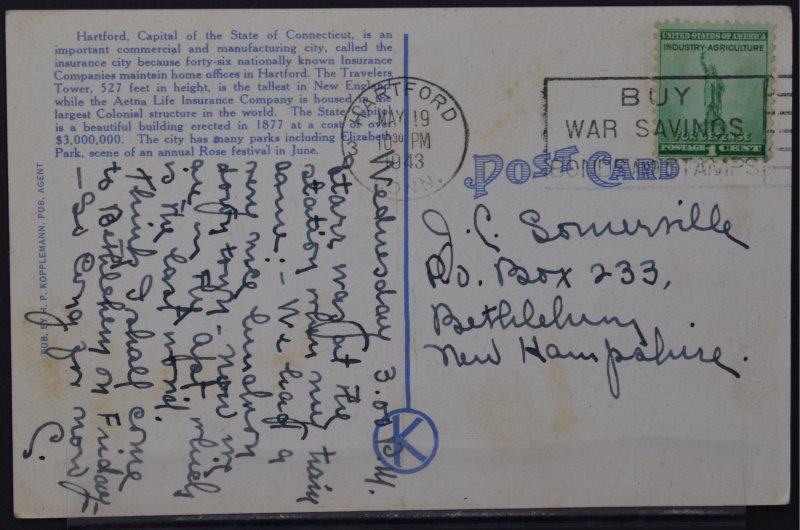 Hartford, Capital of the State of Connecticut, is an
important commercial and manufacturing city, called the
insurance city because forty-six nationally known Insurance
Companies maintain home offices in Hartford. The Travelers
Tower, 527 feet in height, is the tallest in New England
while the Aetna Life Insurance Company is housed in the
largest Colonial structure in the world. The State Capitol
is a beautiful building erected in 1877 at a cost of over
$3,000,000. The city has many parks including Elizabeth
Park, scene of an annual Rose festival in June.
PUB. BY H. P. KOPPLEMANN. PUB. AGENT
Wednesday 3.00 P.M.
Starr was at the
station when my train
came:- We had a
very nice luncheon
down town - now in
are in the apt which
is the last word.
Think I shall come
to Bethlehem on Friday -
- So long for now
C.
K
HARTFORD
MAY 19
10 30 PM
1943
3
CONN.
BUY
WAR SAVINGS
BONDS AND STAMPS
UNITED STATES OF AMERICA
INDUSTRY-AGRICULTURE
FOR DEFENSE
POSTAGE 1 CENT
POST CARD
J. C. Somerville
P.O. Box 233,
Bethlehem
New Hampshire.